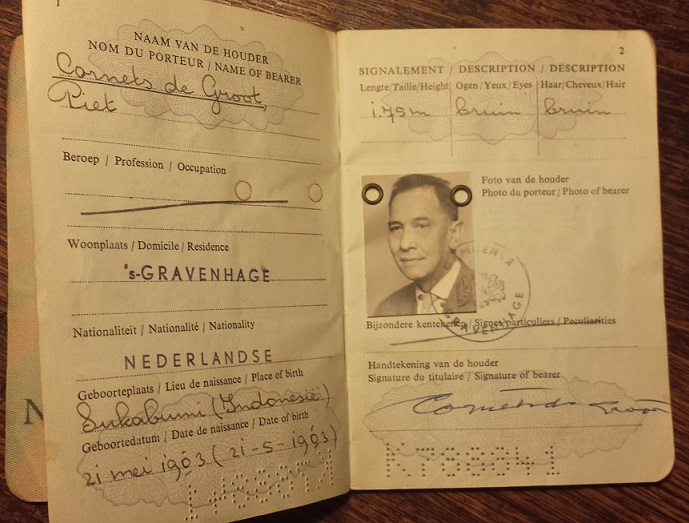 1
NAAM VAN DE HOUDER
NOM DU PORTEUR / NAME OF BEARER
Cornets de Groot,
Piet
Beroep / Profession / Occupation
Woonplaats / Domicile / Residence
's-GRAVENHAGE
Nationaliteit / Nationalité / Nationality
NEDERLANDSE
Geboorteplaats / Lieu de naissance / Place of birth
Sukabumi (Indonesië)
Geboortedatum / Date de naissance / Date of birth
21 mei 1903 (21-5-1903)
N
2
SIGNALEMENT / DESCRIPTION / DESCRIPTION
Lengte/Taille/Height Ogen/Yeux/Eyes Haar/Cheveux/Hair
1.75m bruin bruin
Foto van de houder
Photo du porteur/Photo of bearer
GEMEENTE
'S-GRAVENHAGE
Bijzondere kentekenen / Signes particuliers / Peculiarities
Handtekening van de houder
Signature du titulaire / Signature of bearer
Cornets de Groot